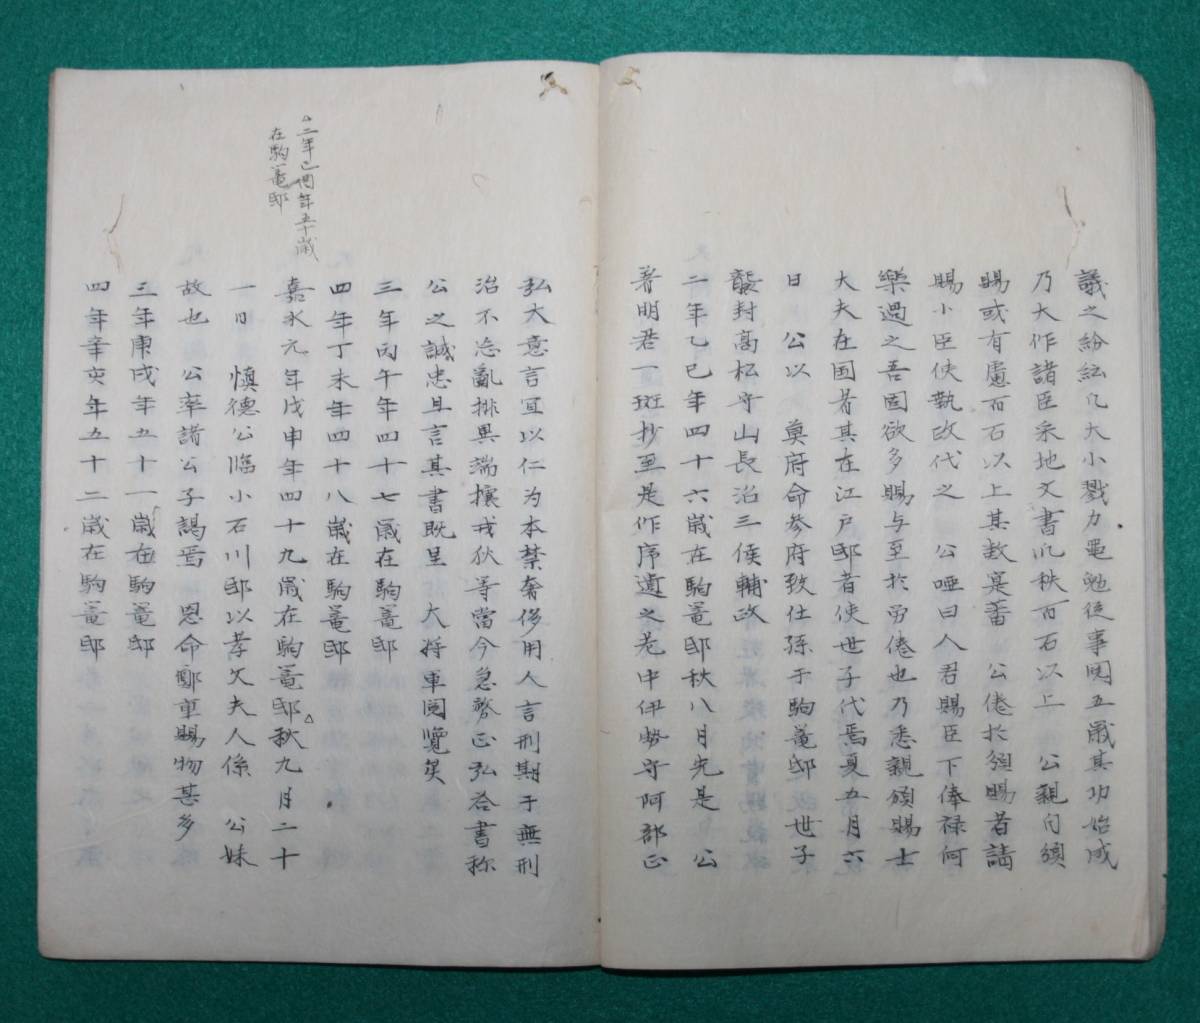 議之紛紜凡大小戮力黽勉従事閲五爾其功始成
乃大作諸臣采地文書凡秩百石以上 公親自頒
賜或有慮百石以上其数寔蕃 公倦於頒賜者請
賜小臣使執政代之 公唖曰人君賜臣下俸禄何
樂過之吾固欲多賜与至於労倦也乃悉親頒賜士
大夫在国者其在江戸邸者使世子代焉夏五月六
日 公以 幕府命参府致仕孫于駒篭邸世子
襲封髙松守山長沼三侯輔政
二年乙巳年四十六歳在駒篭邸秋八月先是 公
著明君一斑抄至是作序遺之老中伊勢守阿部正
弘大意言宜以仁为本禁奢侈用人言刑期于無刑
治不忘亂排異端攘戎狄等當今急務正弘答書称
公之誠忠且言其書既呈 大将軍閲覧矣
三年丙午年四十七歳在駒篭邸
四年丁未年四十八歳在駒篭邸
嘉永元年戊申年四十九歳在駒篭邸△秋九月二十
一日 慎徳公臨小石川邸以孝文夫人係 公妹
故也 公率諸公子謁焉 恩命鄭重賜物甚多
△二年己酉年五十歳
在駒篭邸
三年庚戌年五十一歳在駒篭邸
四年辛亥年五十二歳在駒篭邸